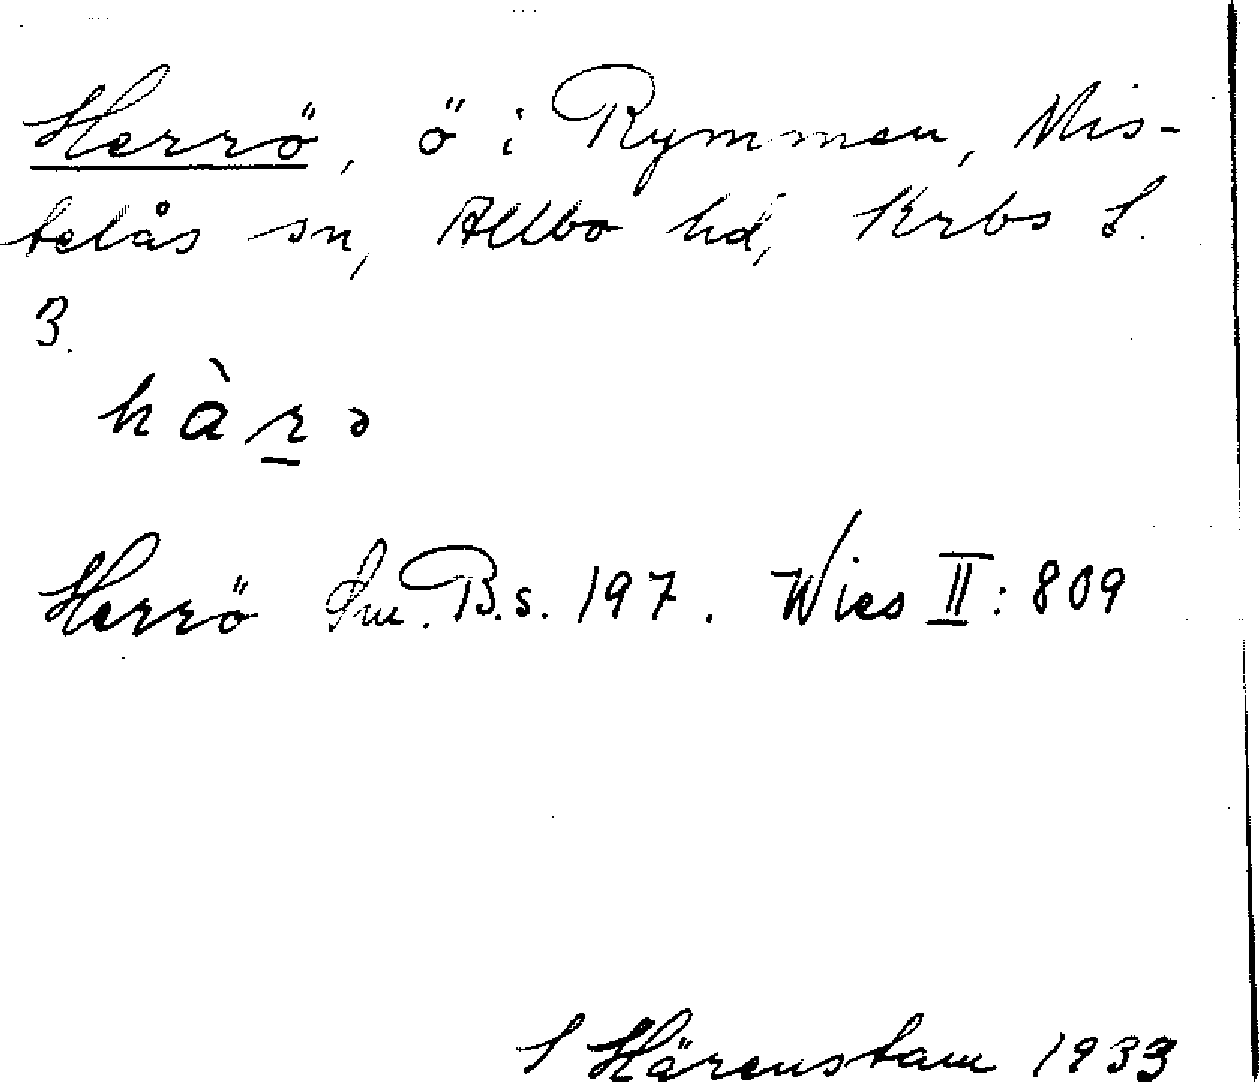 Herrö, ö i Rymmen, Mis-
telås sn, Allbo hd, Krbs l.
3.
hàr̲ə
Herrö Sm. B. s. 197. Wies II: 809
S Härenstam 1933